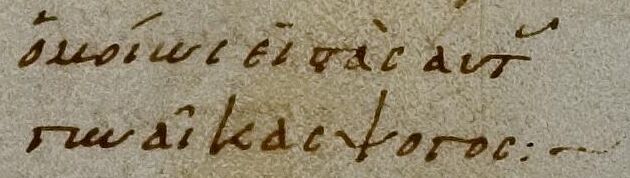 ὁμοίως εἰς τὰς αυτ
γυναῖκας ψογος:~